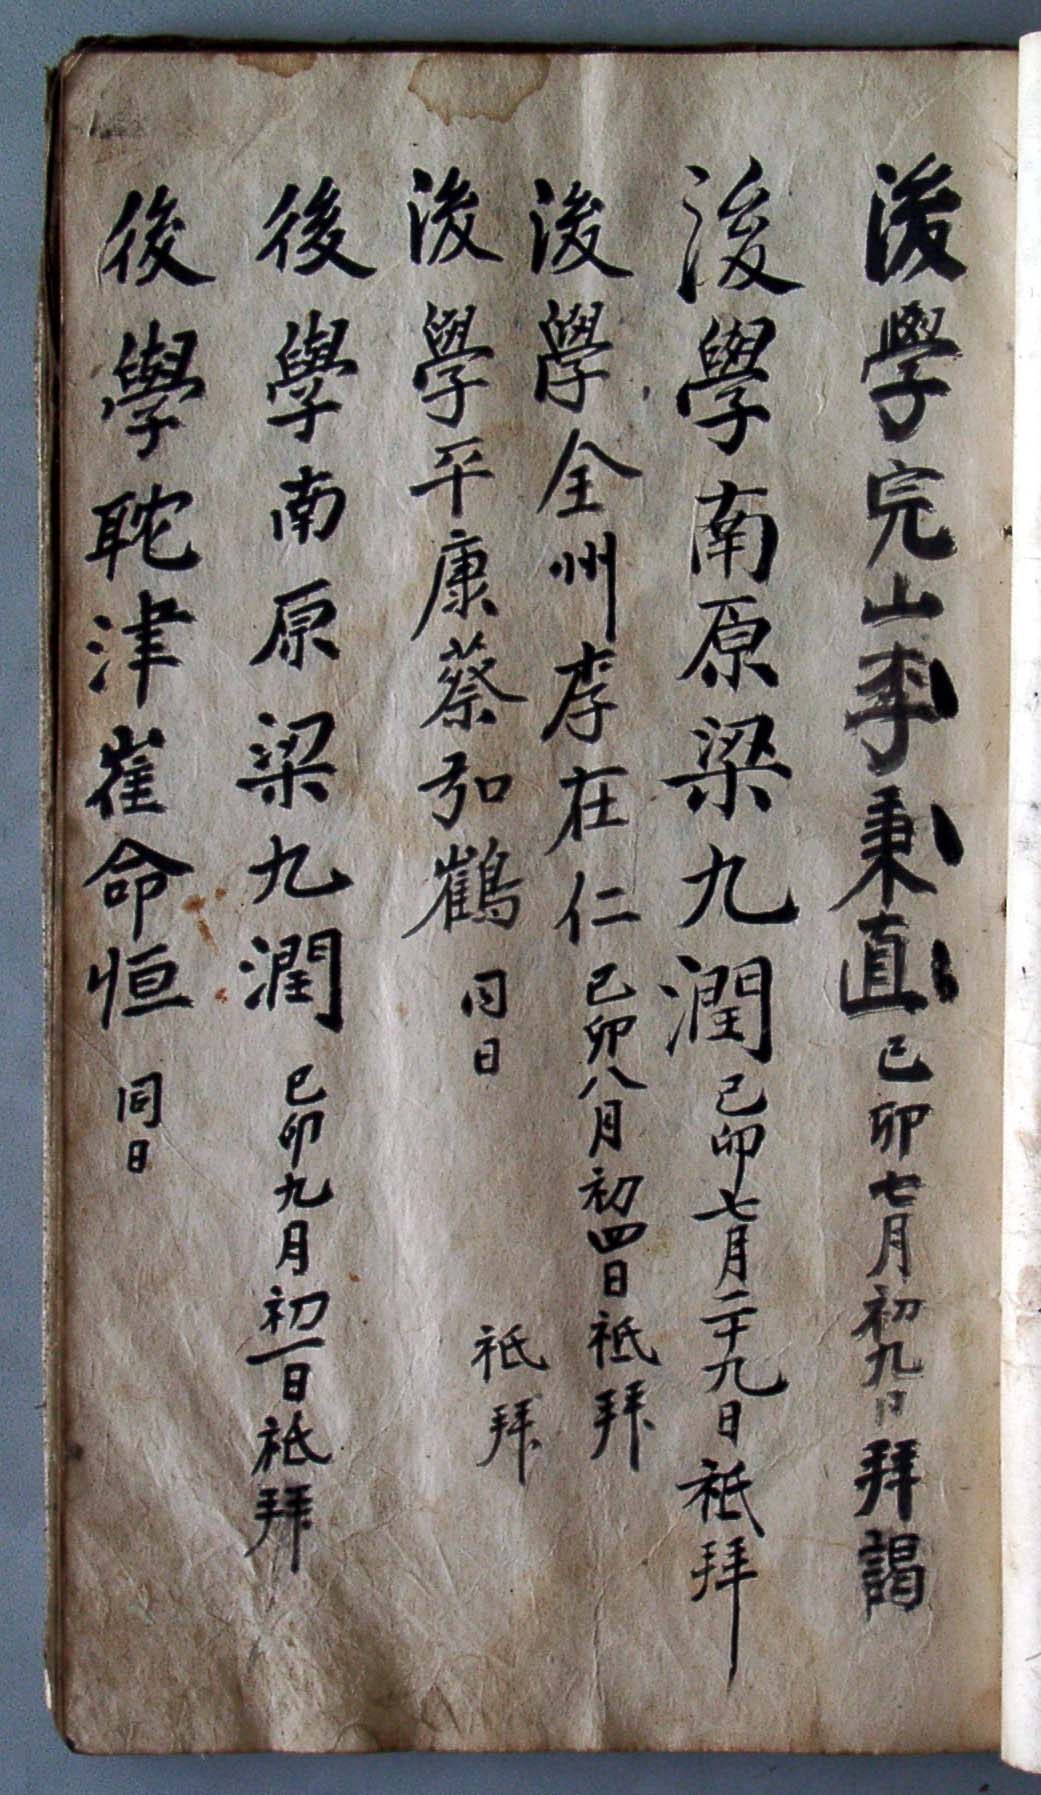 後學完山李秉直己卯七月初九日拜謁
後學南原梁九潤己卯七月二十九日祗拜
後學全州李在仁己卯八月初四日祗拜
後學平康蔡弘鶴同日祗拜
後學南原梁九潤己卯九月初一日祗拜
後學耽津崔命恒同日